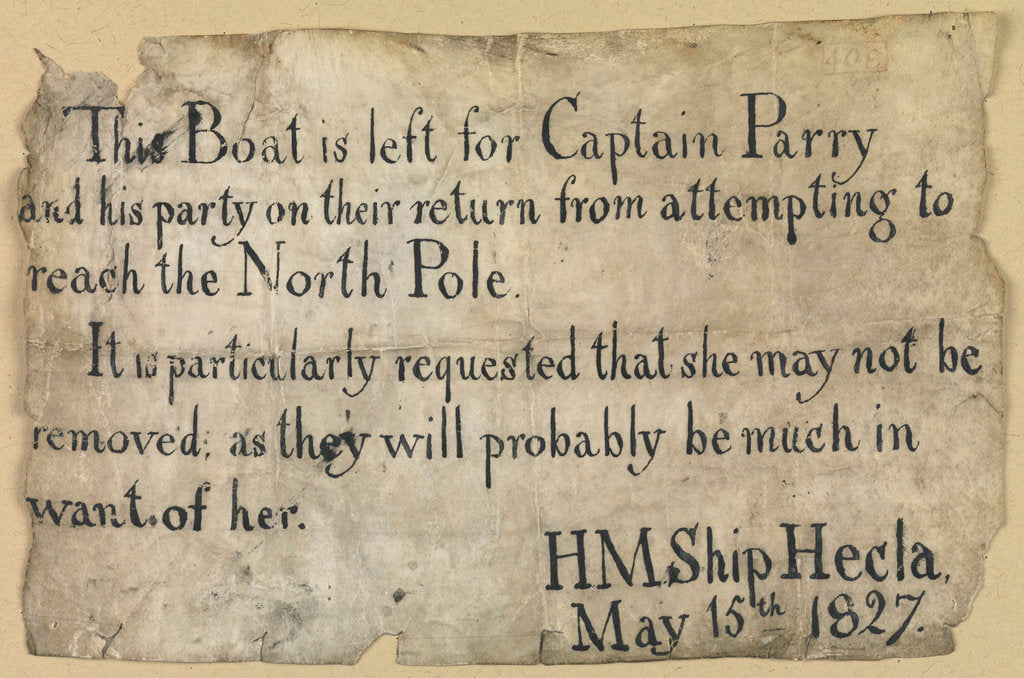 409
This Boat is left for Captain Parry
and his party on their return from attempting to
reach the North Pole.
It is particularly requested that she may not be
removed; as they will probably be much in
want of her.
HM Ship Hecla,
May 15th 1827.